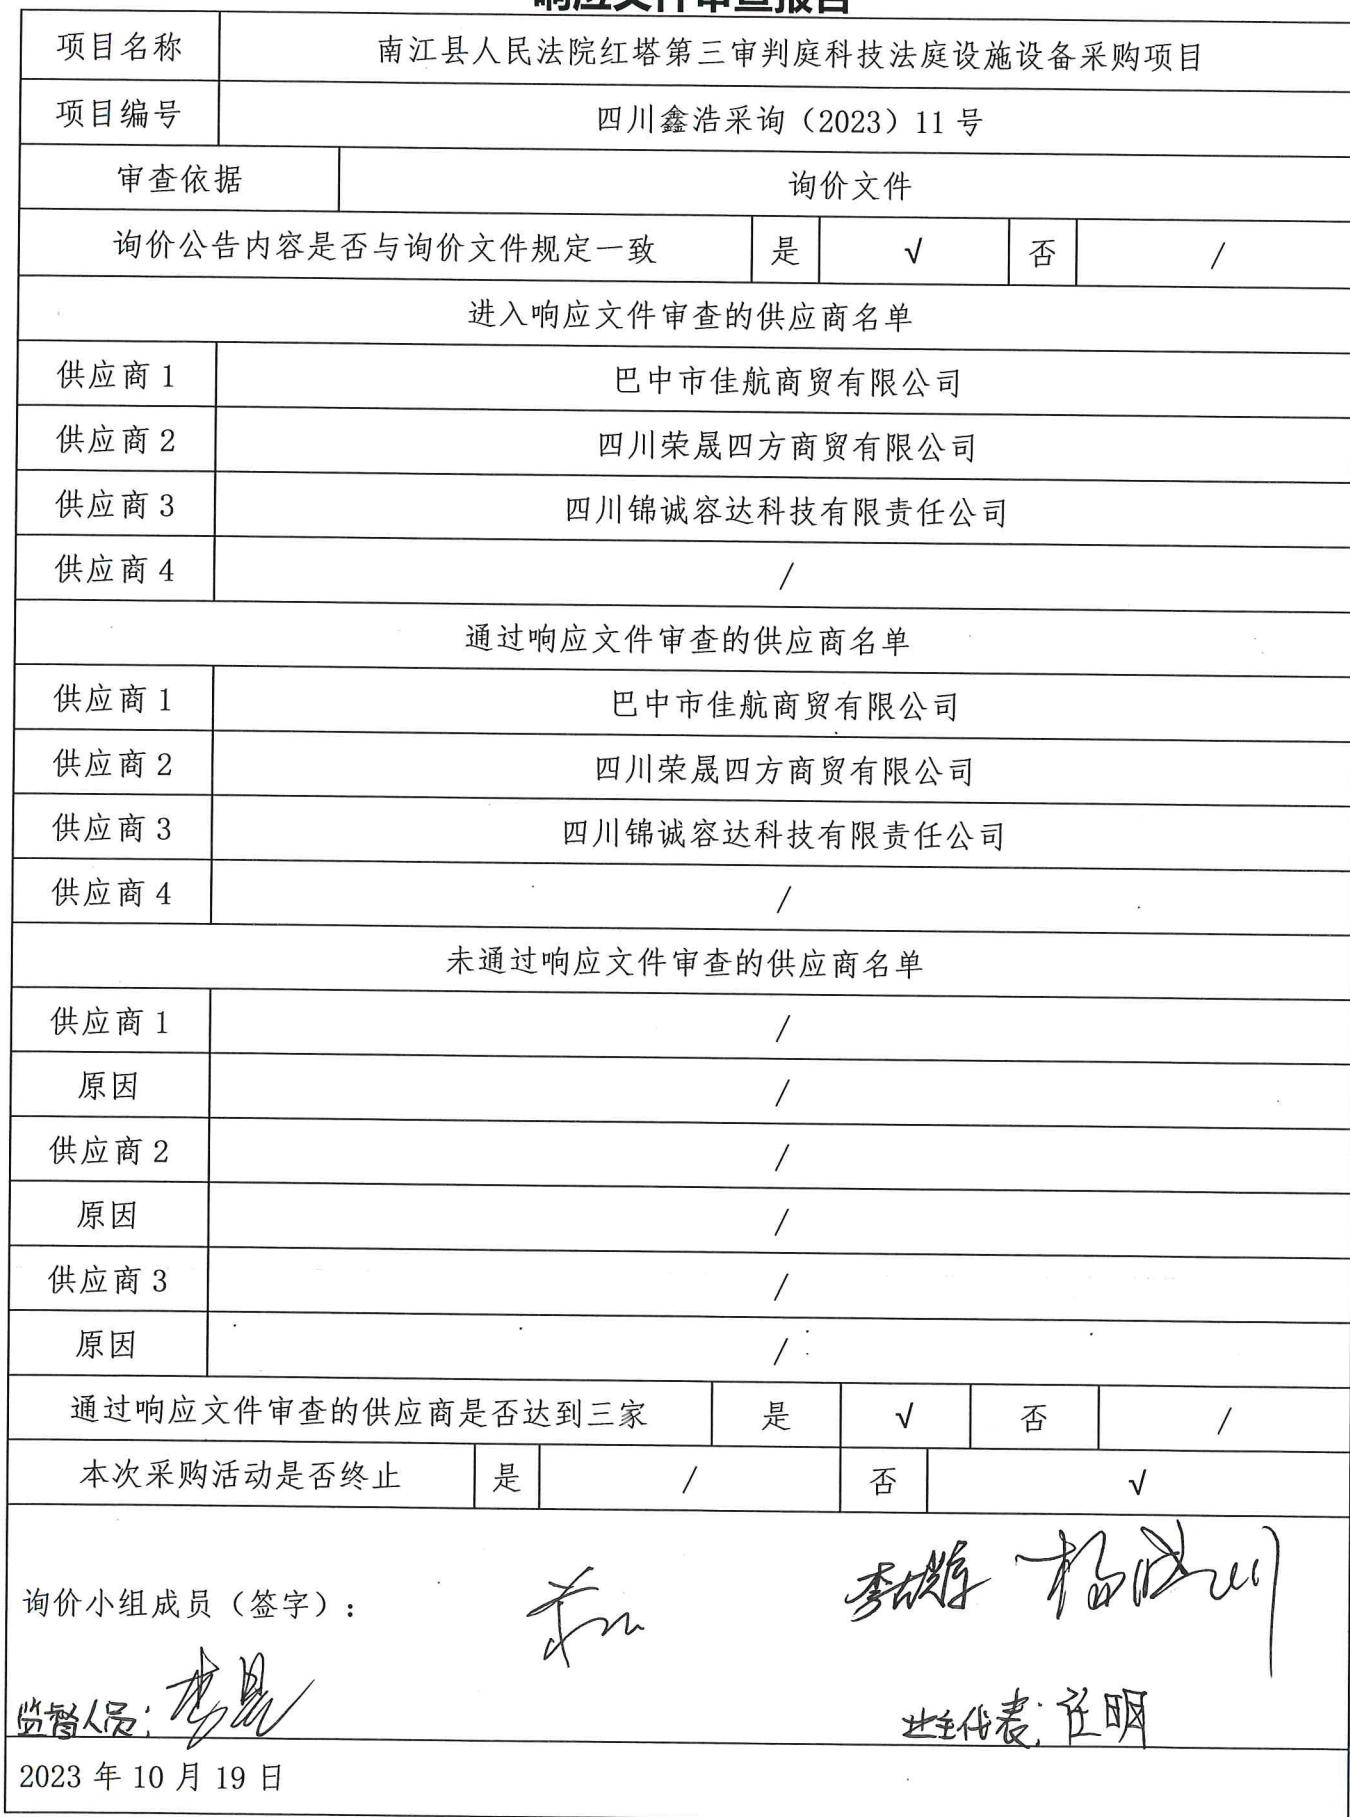 响应文件审查报告
项目名称 南江县人民法院红塔第三审判庭科技法庭设施设备采购项目
项目编号 四川鑫浩采询（2023）11 号
审查依据 询价文件
询价公告内容是否与询价文件规定一致 是 √ 否 /
进入响应文件审查的供应商名单
供应商 1 巴中市佳航商贸有限公司
供应商 2 四川荣晟四方商贸有限公司
供应商 3 四川锦诚容达科技有限责任公司
供应商 4 /
通过响应文件审查的供应商名单
供应商 1 巴中市佳航商贸有限公司
供应商 2 四川荣晟四方商贸有限公司
供应商 3 四川锦诚容达科技有限责任公司
供应商 4 /
未通过响应文件审查的供应商名单
供应商 1 /
原因 /
供应商 2 /
原因 /
供应商 3 /
原因 /
通过响应文件审查的供应商是否达到三家 是 √ 否 /
本次采购活动是否终止 是 / 否 √
询价小组成员（签字）：
监督人员： 业主代表：任明
2023 年 10 月 19 日